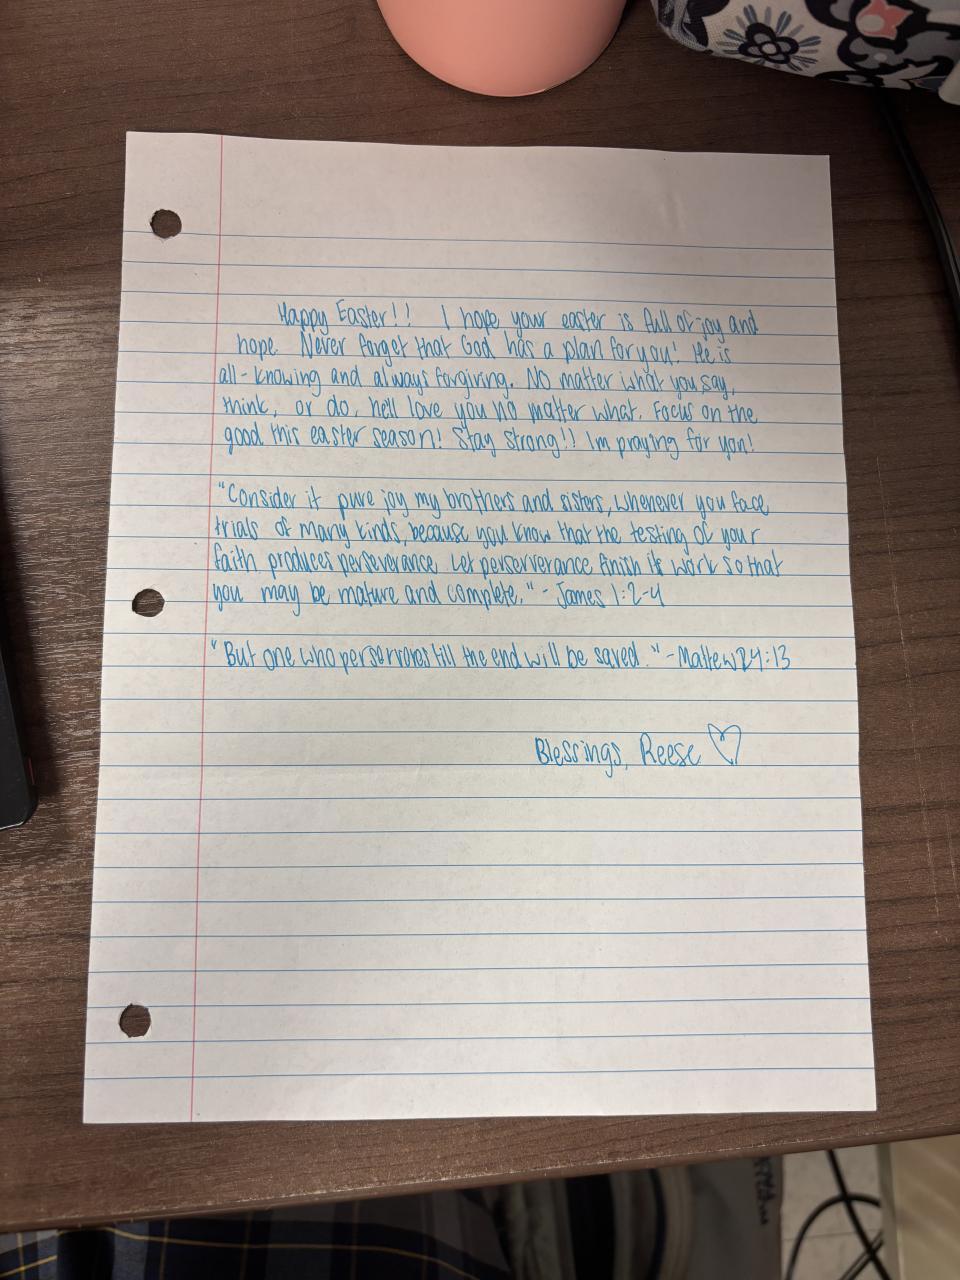 Happy Easter!! I hope your easter is full of joy and
hope. Never forget that God has a plan for you! He is
all-knowing and always forgiving. No matter what you say,
think, or do, he'll love you no matter what. Focus on the
good this easter season! Stay strong!! Im praying for you!
"Consider it pure joy my brothers and sisters, whenever you face
trials of many kinds, because you know that the testing of your
faith produces perseverance. Let perserverance finish its work so that
you may be mature and complete." - James 1:2-4
"But one who perserveres till the end will be saved." - Mattew 24:13
Blessings, Reese ♡